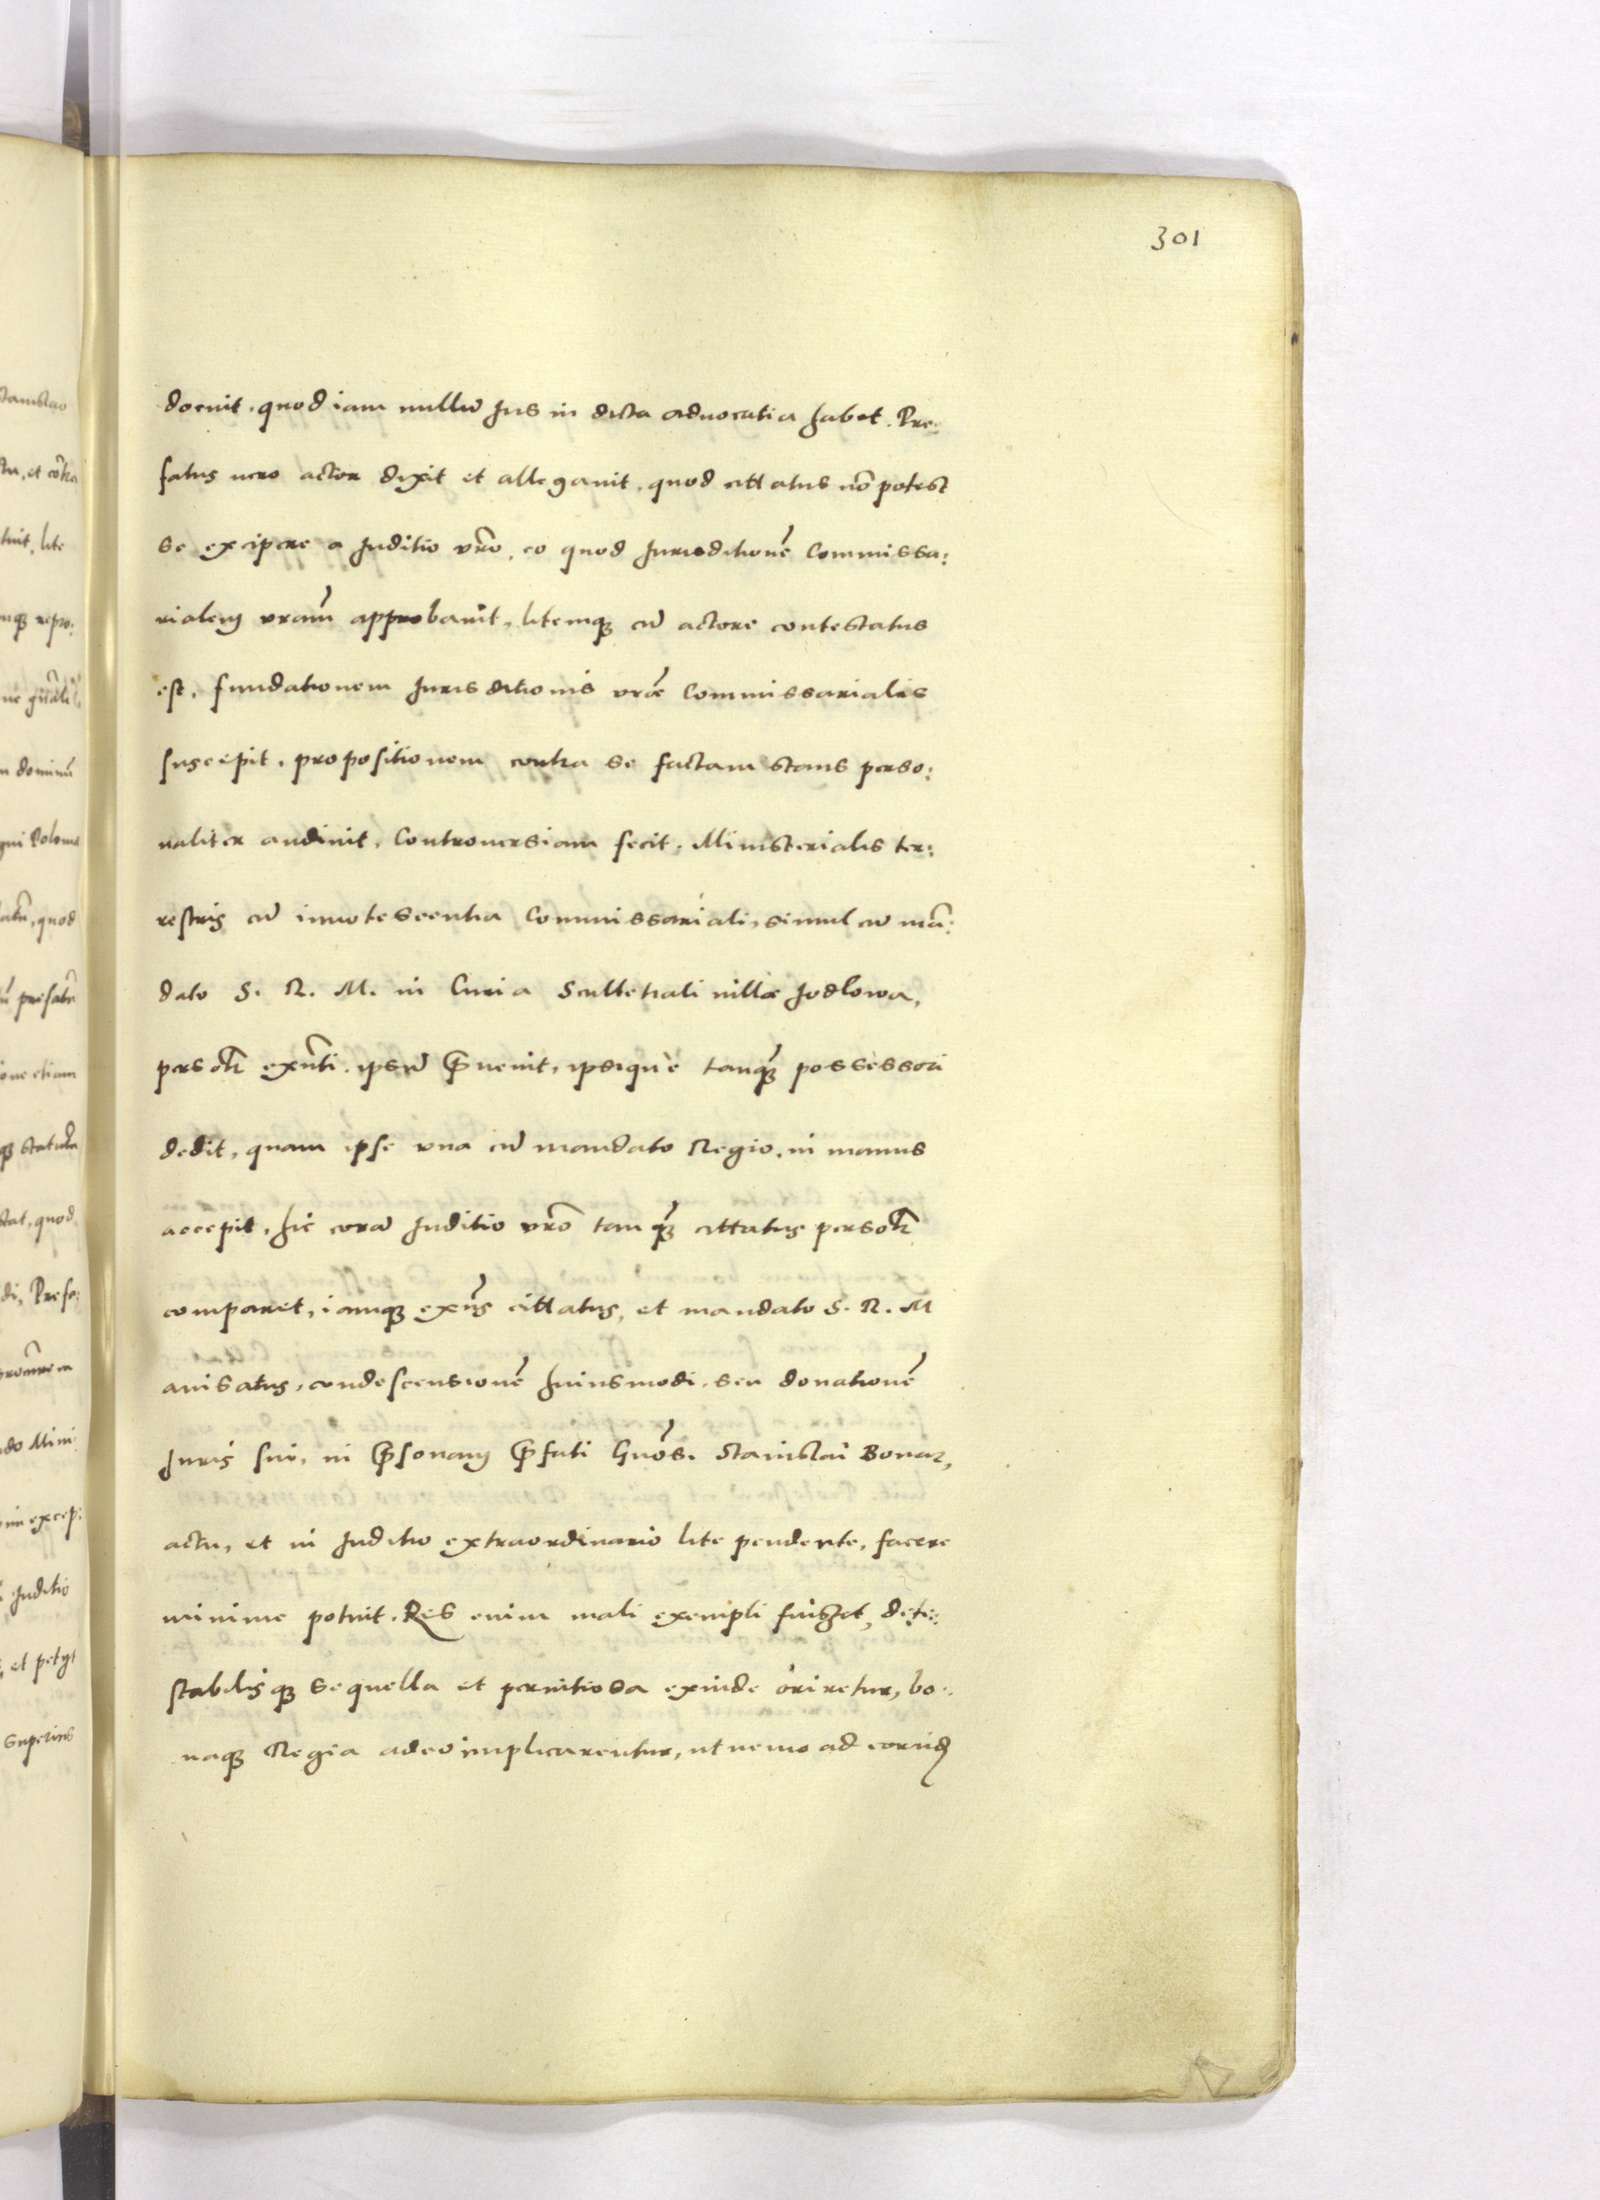 301
docuit, quod iam nullũ Jus in dicta aduocatia habet. Pre:
fatus uero actor dixit et allegauit, quod cittatus nõ potest
se excipere a Juditio vr̃o, eo quod Jurisditionẽ Commissa:
rialem vram̃ approbauit, litemqꝫ cũ actore contestatus
est, fundationem Jurisditionis vræ̃ Commissarialis
suscepit, propositionem contra se factam stans perso:
naliter audiuit, Controuersiam fecit. Ministerialis ter:
restris cũ innotescentia Commissariali, simul cũ mã:
dato S. R. M. in Curia Scultetiali uillæ Jodlowa,
exñti, ipsũ p̃uenit, ipsiquè tanqꝫ̃ possessori
dedit, quam ipse vna cũ mandato Regio, in manus
accepit, hic corã Juditio vr̃o tanqꝫ̃ cittatus
comparet, iamqꝫ exñs cittatus, et mandato S. R. M
auisatus, condescensionẽ huiusmodi, seu donationẽ
Juris sui, in p̃sonam p̃fati Gñosi. Stanislai Bonar,
actu, et in Juditio extraordinario lite pendente, facere
minime potuit. Res enim mali exempli fuisset, dete:
stabilisqꝫ sequella et pernitiosa exinde oriretur, bo:
naqꝫ Regia adeo implicarentur, ut nemo ad eorũd